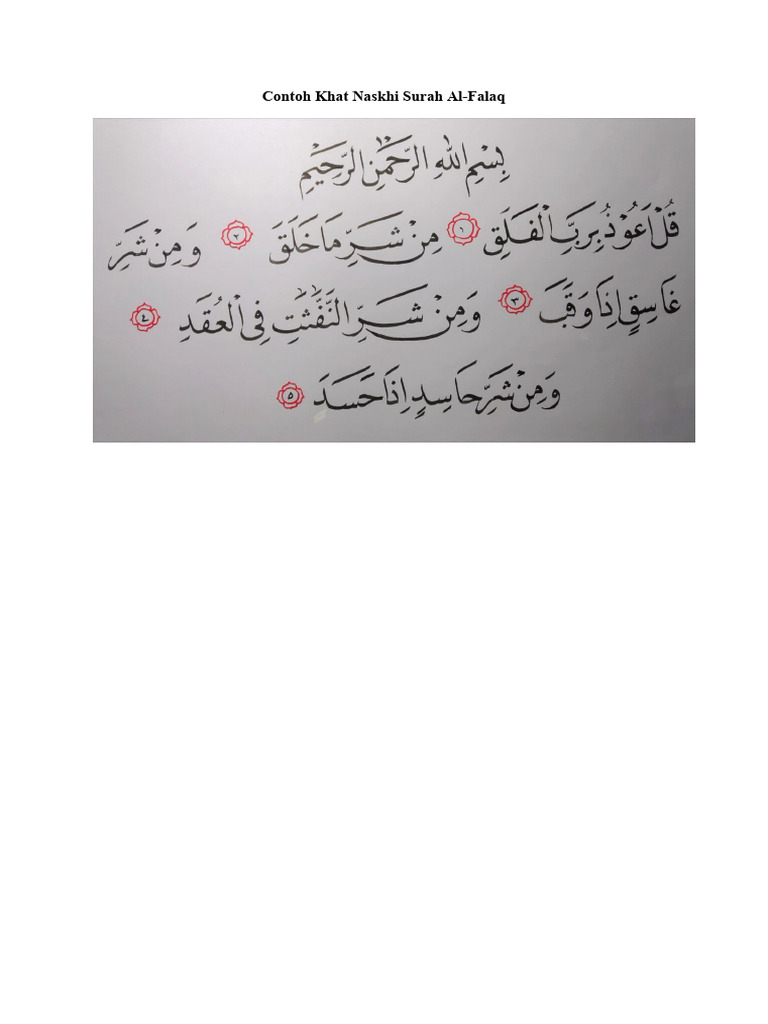 Contoh Khat Naskhi Surah Al-Falaq
بِسْمِ اللهِ الرَّحْمٰنِ الرَّحِيْمِ
قُلْ اَعُوْذُ بِرَبِّ الْفَلَقِ ١ مِنْ شَرِّ مَا خَلَقَ ٢ وَمِنْ شَرِّ
غَاسِقٍ اِذَا وَقَبَ ٣ وَمِنْ شَرِّ النَّفّٰثٰتِ فِى الْعُقَدِ ٤
وَمِنْ شَرِّ حَاسِدٍ اِذَا حَسَدَ ٥